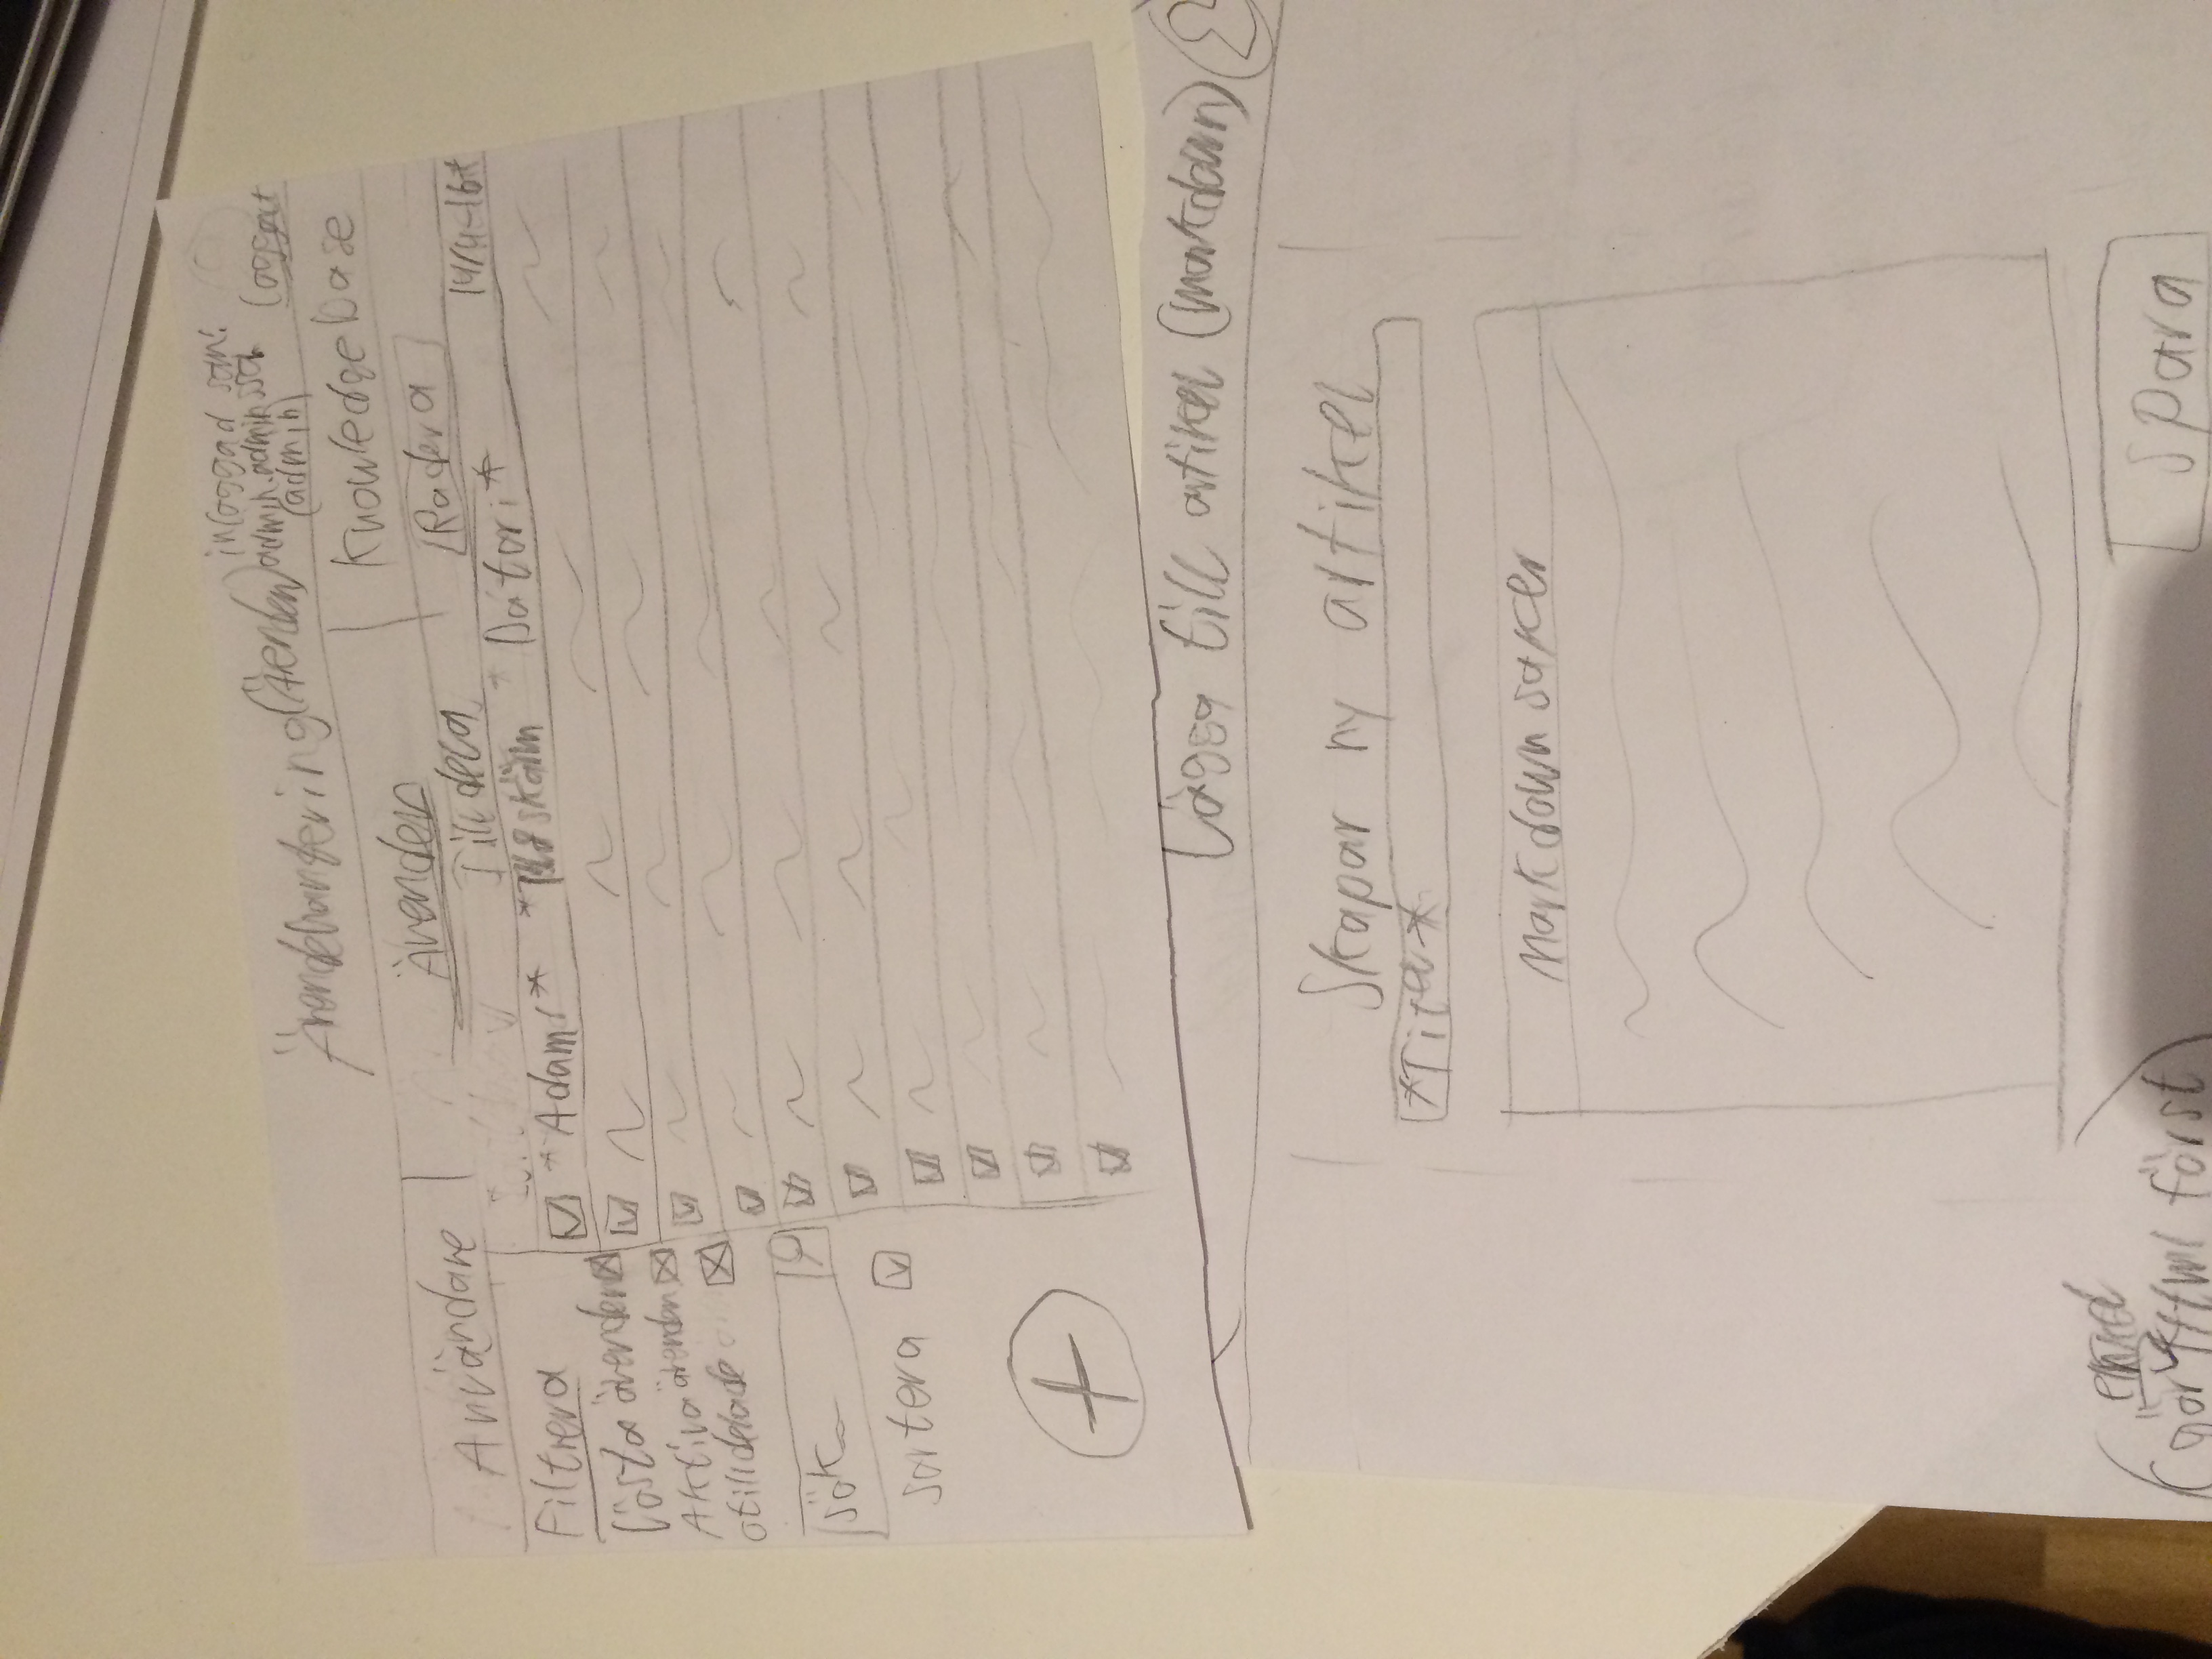 Ärendehantering (Ärenden)
inloggad som:
admin.adminsson
(admin)
Loggaut
Användare
Ärenden
Knowledgebase
Tilldela
Radera
Filtrera
Lösta ärenden
Aktiva ärenden
otilldelade
sök
sortera
*Adam*
skärm
*Datori*
14/4-16*
+
Lägga till artikel (markdown)
Skapar ny artikel
*Titel*
Markdown saker
gör html först
Spara